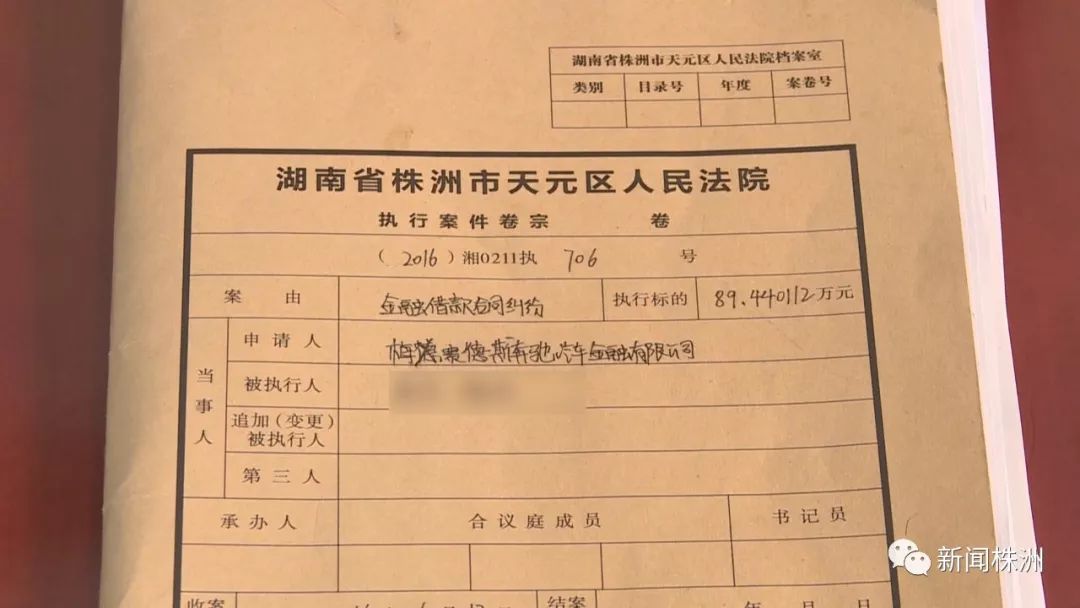 湖南省株洲市天元区人民法院档案室
类别 目录号 年度 案卷号
湖南省株洲市天元区人民法院
执行案件卷宗 卷
（2016）湘0211执 706 号
案由 金融借款合同纠纷 执行标的 89.440112万元
当事人
申请人 梅赛德斯奔驰汽车金融有限公司
被执行人
追加(变更)
被执行人
第三人
承办人 合议庭成员 书记员
收案 结案 年 月 日
新闻株洲